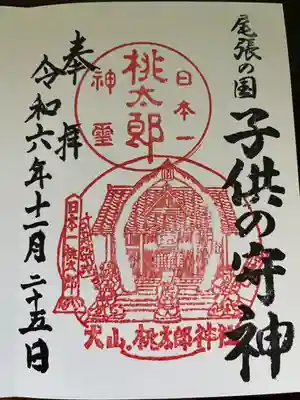 尾張の国
子供の守神
日本一
桃太郎
神霊
犬山.桃太郎神社
奉拝
令和六年十二月二十五日